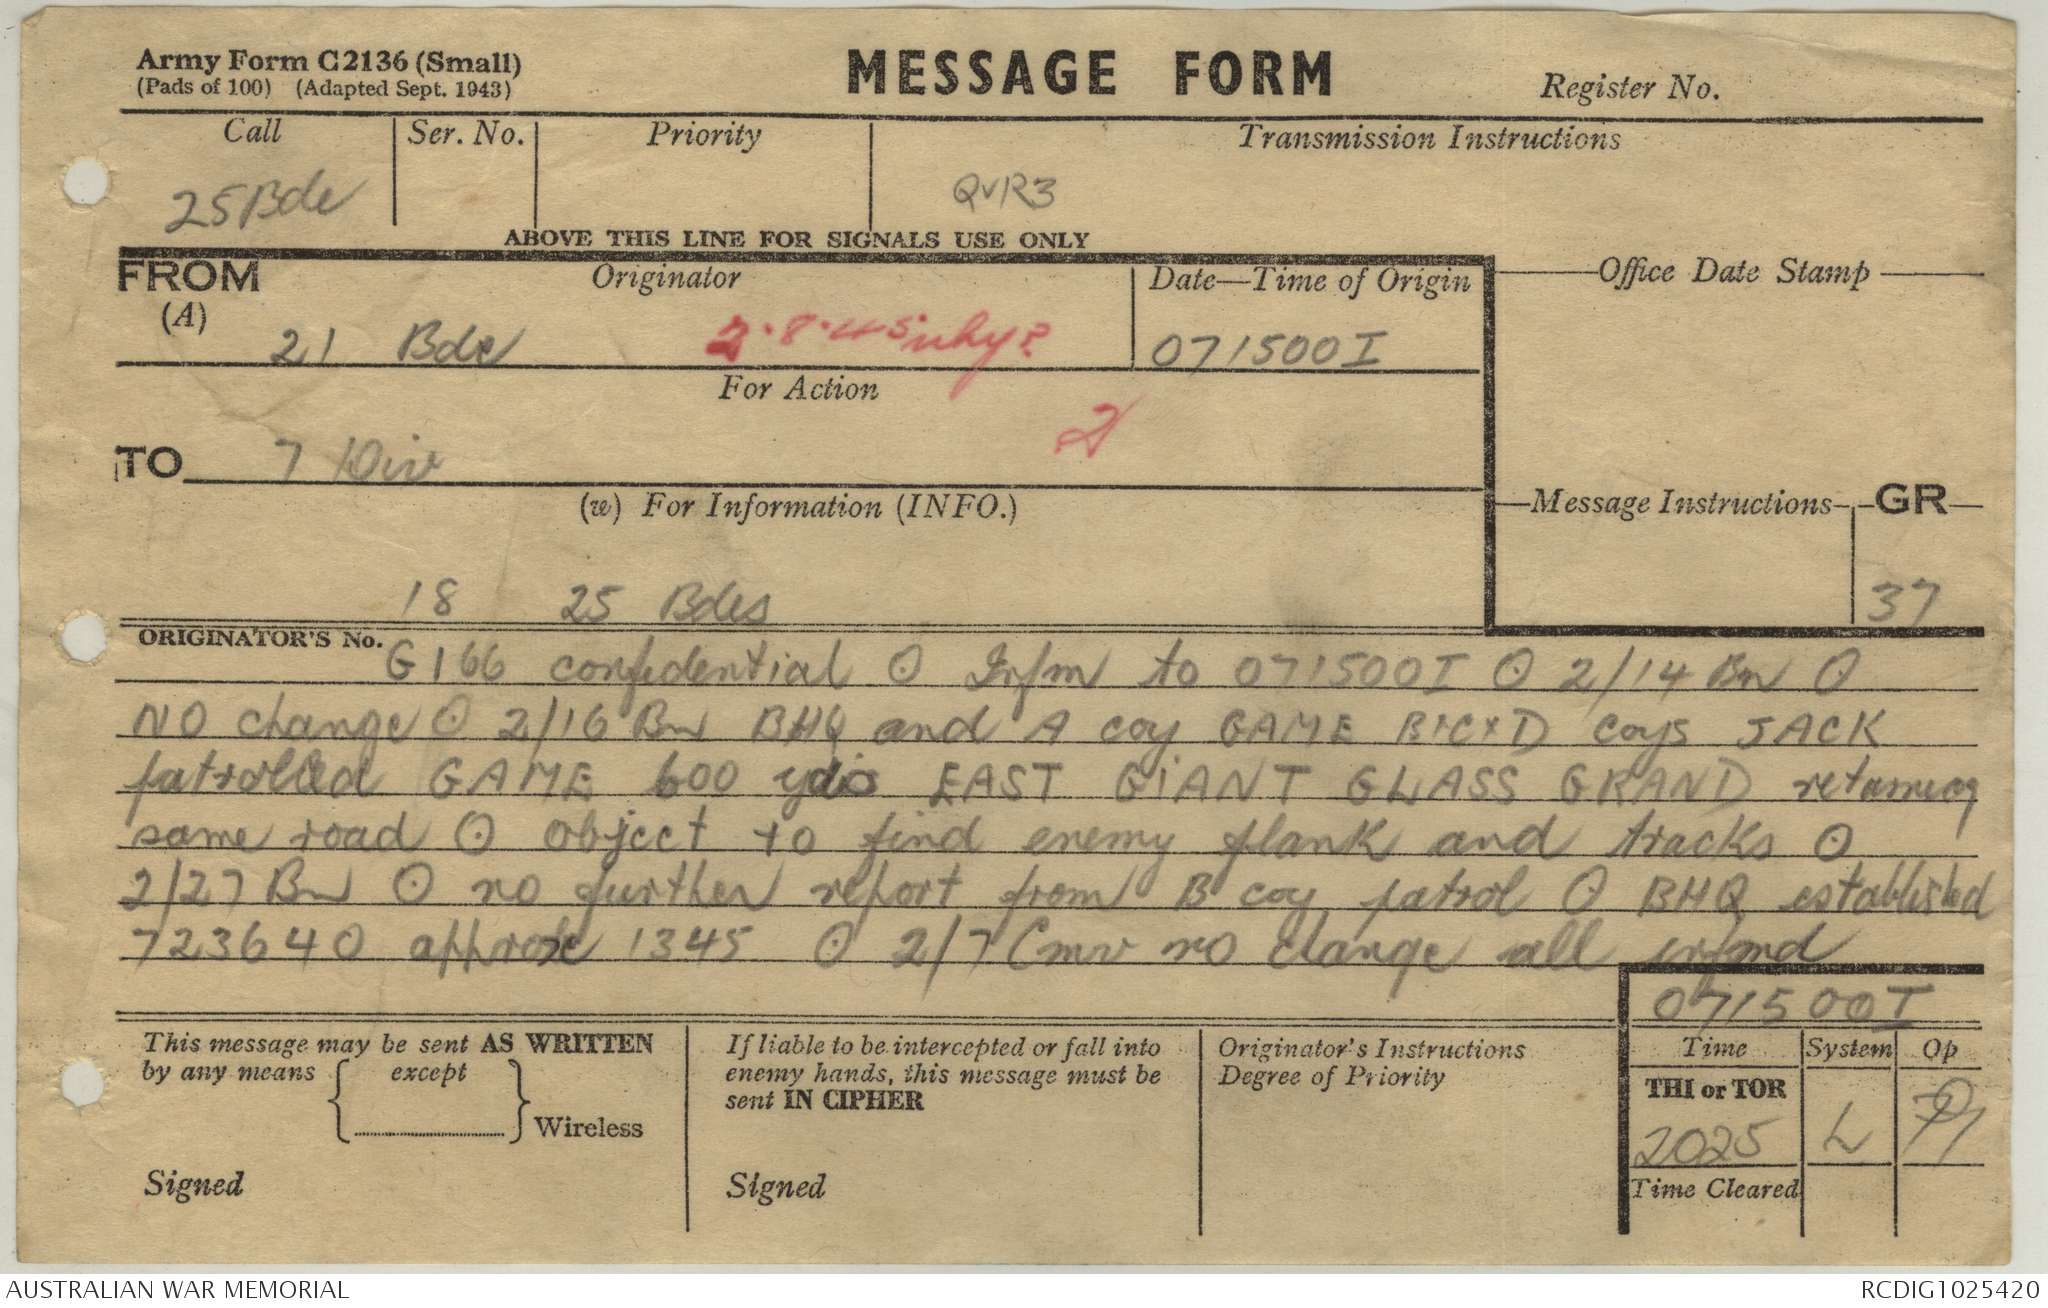 Army Form C2136 (Small)
(Pads of 100) (Adapted Sept. 1943)
MESSAGE FORM
Register No.
Call
Ser. No.
Priority
Transmission Instructions
25 Bde
QVR3
ABOVE THIS LINE FOR SIGNALS USE ONLY
FROM
(A)
Originator
Date—Time of Origin
Office Date Stamp
21 Bde
2.8.45 why?
071500I
For Action
2
TO
7 Div
(w) For Information (INFO.)
Message Instructions
GR
18 25 Bdes
37
ORIGINATOR'S No.
G166 confidential O Infm to 071500I O 2/14 Bn O
NO change O 2/16 Bn BHQ and A coy GAME B+C+D coys JACK
patrolled GAME 600 yds EAST GIANT GLASS GRAND
same road O object to find enemy flank and tracks O
2/27 Bn O no further report from B coy patrol O BHQ established
723640 approx 1345 O 2/7 Cmv no change all infmd
071500I
This message may be sent AS WRITTEN
by any means except
Wireless
Signed
If liable to be intercepted or fall into
enemy hands, this message must be
sent IN CIPHER
Signed
Originator's Instructions
Degree of Priority
Time
System
Op
THI or TOR
2025
L
Time Cleared
AUSTRALIAN WAR MEMORIAL
RCDIG1025420